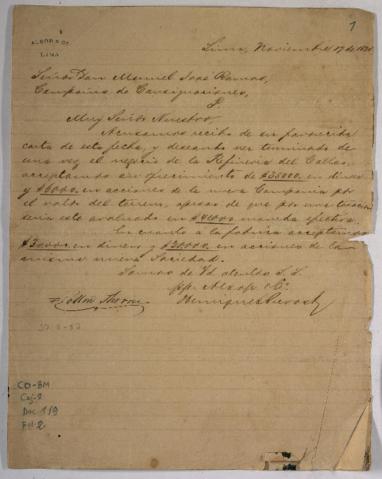 1
ALSOP & Cº
LIMA
Lima, Noviembre 17 de
Señor Don Manuel José Ramos,
Compañia de Consignaciones,
P.
Muy Señor Nuestro,
Acusamos recibo de su favorecida
carta de esta fecha, y deseando ver terminado de
una vez el negocio de la Refineria del Callao,
aceptamos su ofrecimiento de $35000. en dinero
y en acciones de la nueva Compañia por
el valor del terreno, apesar de que por una tasacion
seria esto avaluado en $40000 moneda efectiva.
En cuanto a la aceptamos
en dinero y $20000. en acciones de la
misma nueva Sociedad.
Somos de Vd. atentos S. S.
pp. Alsop & Cº.
CO-BM
Caj-2
Doc 119
Fol 2